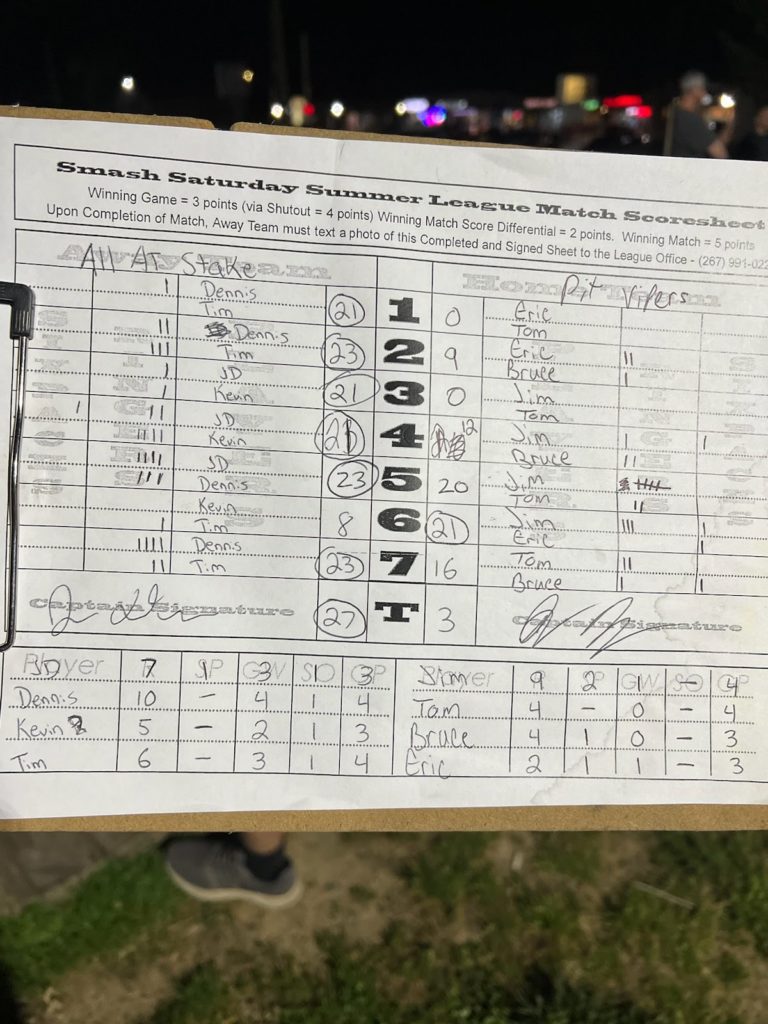 Smash Saturday Summer League Match Scoresheet
Winning Game = 3 points (via Shutout = 4 points) Winning Match Score Differential = 2 points. Winning Match = 5 points
Upon Completion of Match, Away Team must text a photo of this Completed and Signed Sheet to the League Office - (267) 991-022
Away Team Home Team
All At Stake Pit Vipers
I Dennis 21 1 0 Eric
Tim Tom
II Dennis 23 2 9 Eric II
III Tim Bruce I
I JD 21 3 0 Jim
I Kevin Tom
I II JD 4 12 Jim I I
IIII Kevin Bruce II
IIII JD 23 5 20 Jim
III Dennis Tom II
Kevin 8 6 21 Jim III I
I Tim Eric I
IIII Dennis 23 7 16 Tom II
II Tim Bruce I I
Captain Signature 27 T 3 Captain Signature
Player SP GW SO GP Player SP GW SO GP
JD 7 1 3 1 3 Jim 9 2 1 - 4
Dennis 10 - 4 1 4 Tom 4 - 0 - 4
Kevin 5 - 2 1 3 Bruce 4 1 0 - 3
Tim 6 - 3 1 4 Eric 2 1 1 - 3